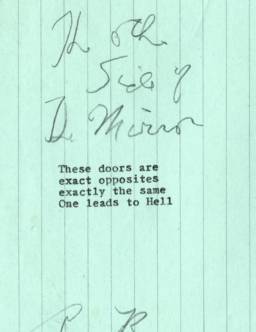 The other
Side of
The Mirror
These doors are
exact opposites
exactly the same
One leads to Hell